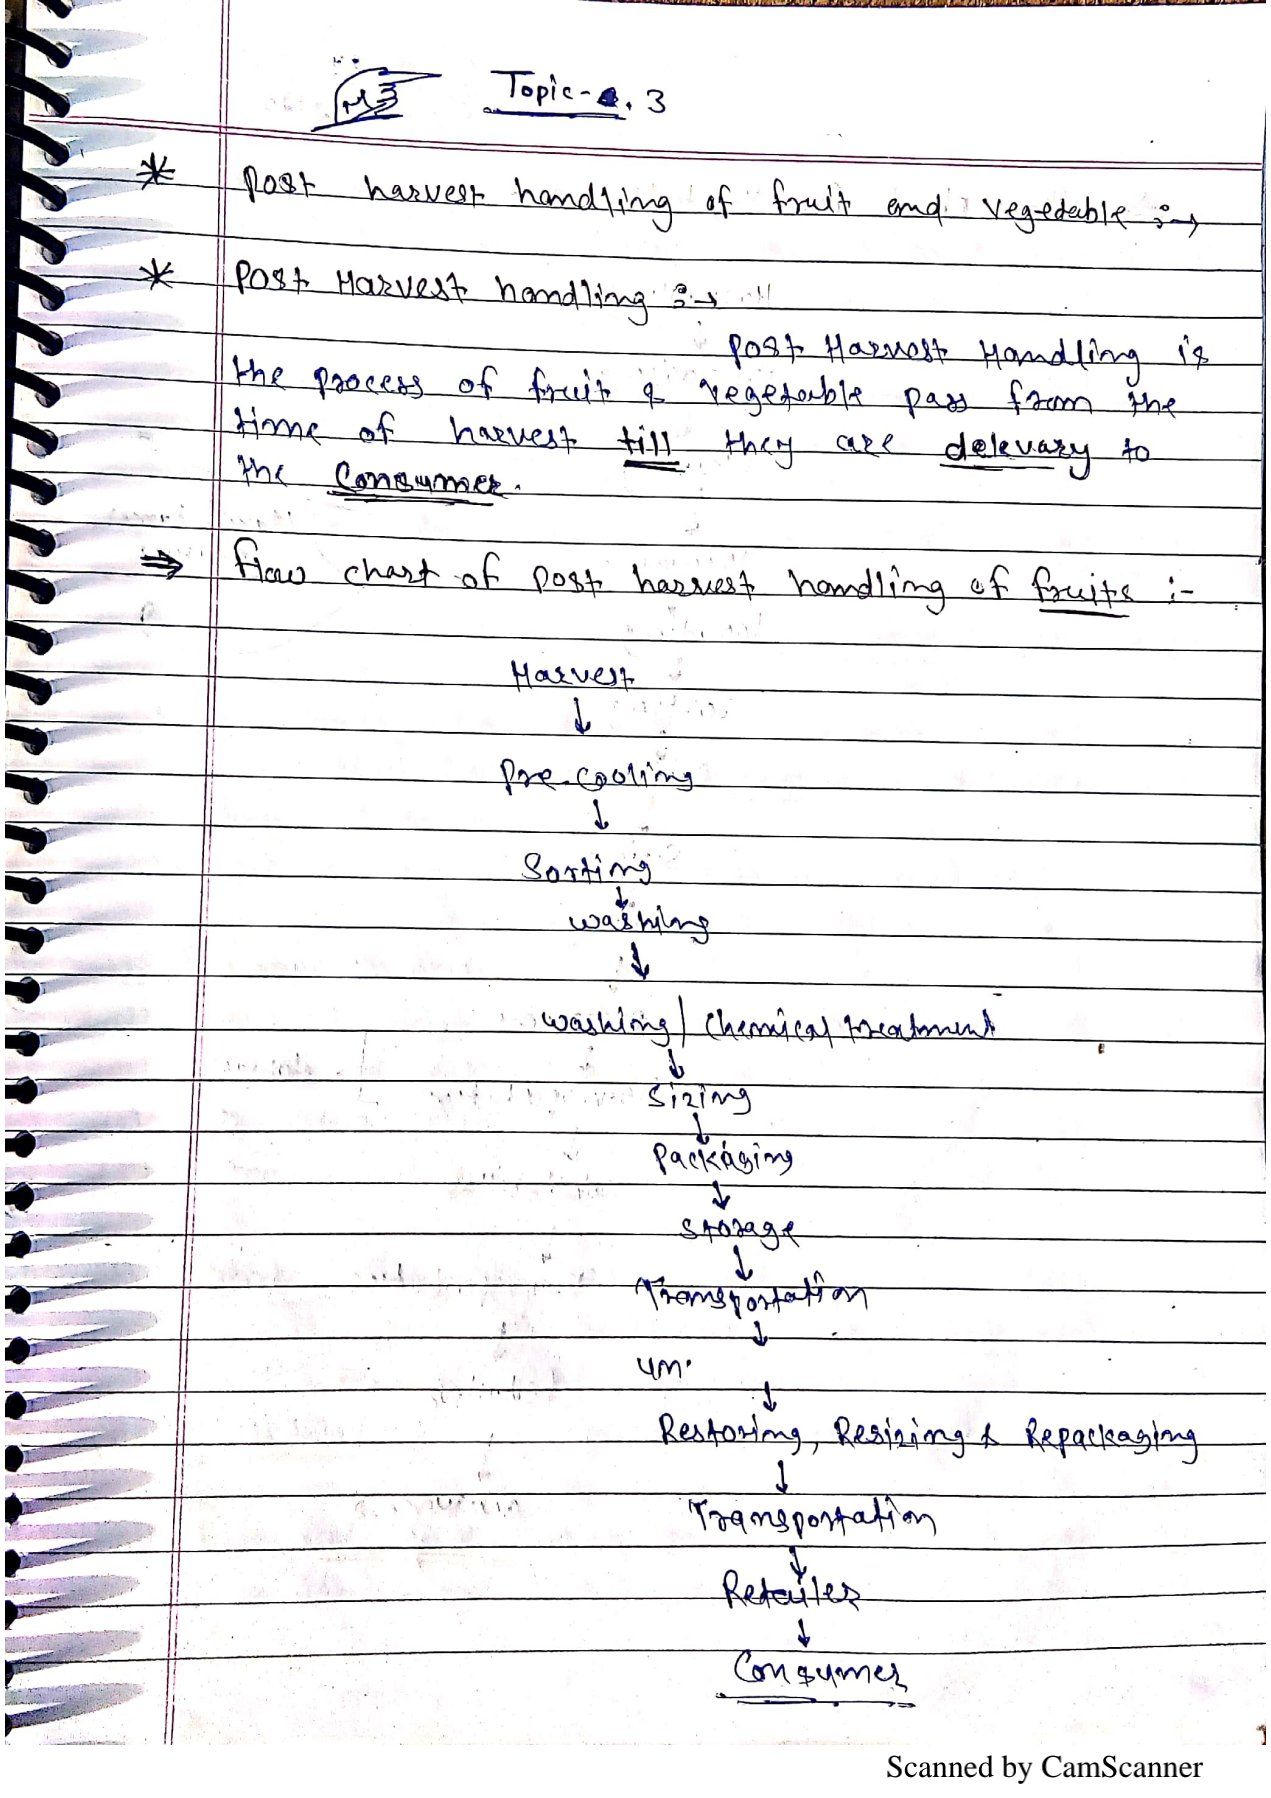 Topic - 3
* Post harvest handling of fruit and vegetable :→
* Post Harvest handling :→
Post Harvest Handling is
the process of fruit & vegetable pass from the
time of harvest till they are delevary to
the Consumer.
⇒ flow chart of post harvest handling of fruits :-
Harvest
↓
Pre-cooling
↓
Sorting
↓
washing
↓
washing / chemical treatment
↓
Sizing
↓
Packaging
↓
Storage
↓
Transportation
↓
↓
Restoring, Resizing & Repackaging
↓
Transportation
↓
Retailer
↓
Consumer
Scanned by CamScanner